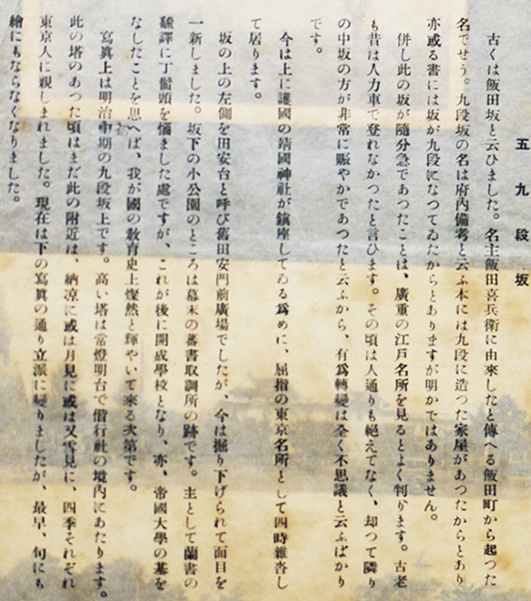 五 九段坂
古くは飯田坂と云ひました。名主飯田喜兵衛に由來したと傳へる飯田町から起つた
名でせう。九段坂の名は府内備考と云ふ本には九段に造つた家屋があつたからとあり
亦或る書には坂が九段になつてゐたからとありますが明かではありません。
併し此の坂が隨分急であつたことは、廣重の江戸名所を見るとよく判ります。古老
も昔は人力車で登れなかつたと言ひます。その頃は人通りも絕えてなく、却つて隣り
の中坂の方が非常に賑やかであつたと云ふから、有爲轉變は全く不思議と云ふばかり
です。
今は上に護國の靖國神社が鎭座してゐる爲めに、屈指の東京名所として四時雜沓し
て居ります。
坂の上の左側を田安台と呼び舊田安門前廣場でしたが、今は掘り下げられて面目を
一新しました。坂下の小公園のところは幕末の蕃書取調所の跡です。主として蘭書の
飜譯に丁髷頭を惱ました處ですが、これが後に開成學校となり、亦、帝國大學の基を
なしたことを思へば、我が國の敎育史上燦然と輝やいて來る次第です。
寫眞上は明治中期の九段坂上です。高い塔は常燈明台で偕行社の境內にあたります。
此の塔のあつた頃はまだ此の附近は、納凉に或は月見に或は又雪見に、四季それぞれ
東京人に親しまれました。現在は下の寫眞の通り立派に變りましたが、最早、句にも
繪にもならなくなりました。